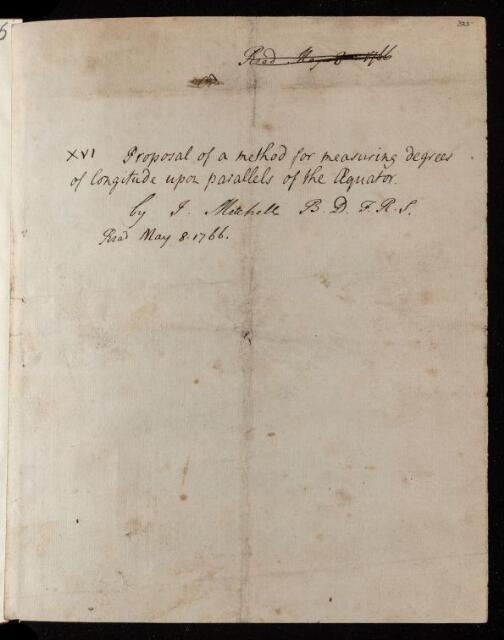 325
Read May 8 1766
XVI Proposal of a method for measuring degrees
of longitude upon parallels of the Æquator.
by J. Mitchell B. D. F. R. S.
Read May 8. 1766.